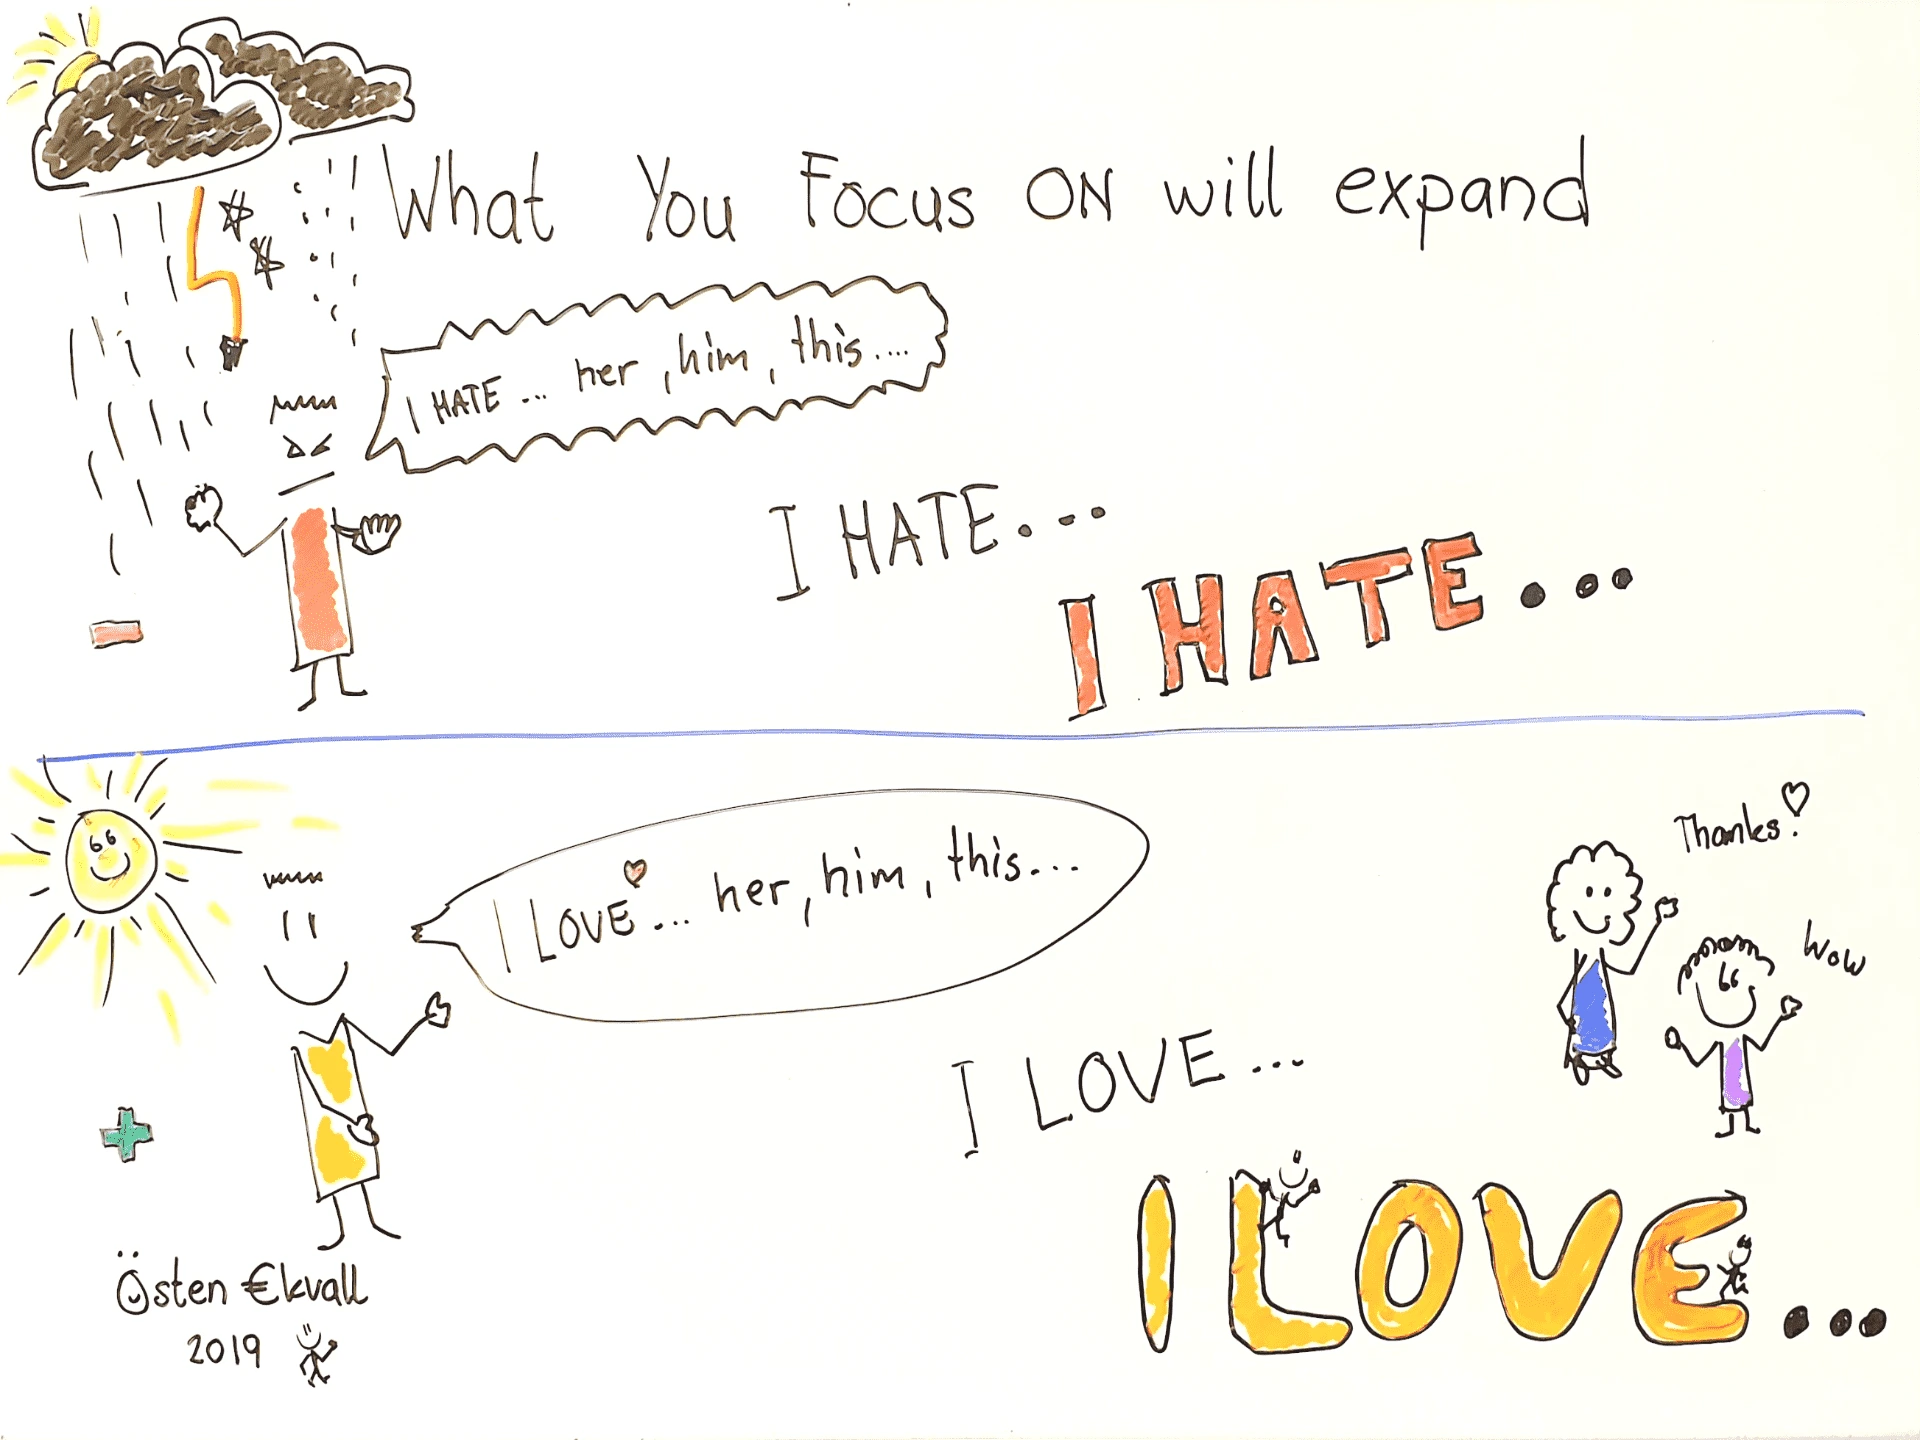 What You Focus ON will expand
I HATE ... her, him, this....
I HATE...
I HATE...
I LOVE ... her, him, this...
Thanks!
Wow
I LOVE...
I LOVE...
Östen €kvall
2019